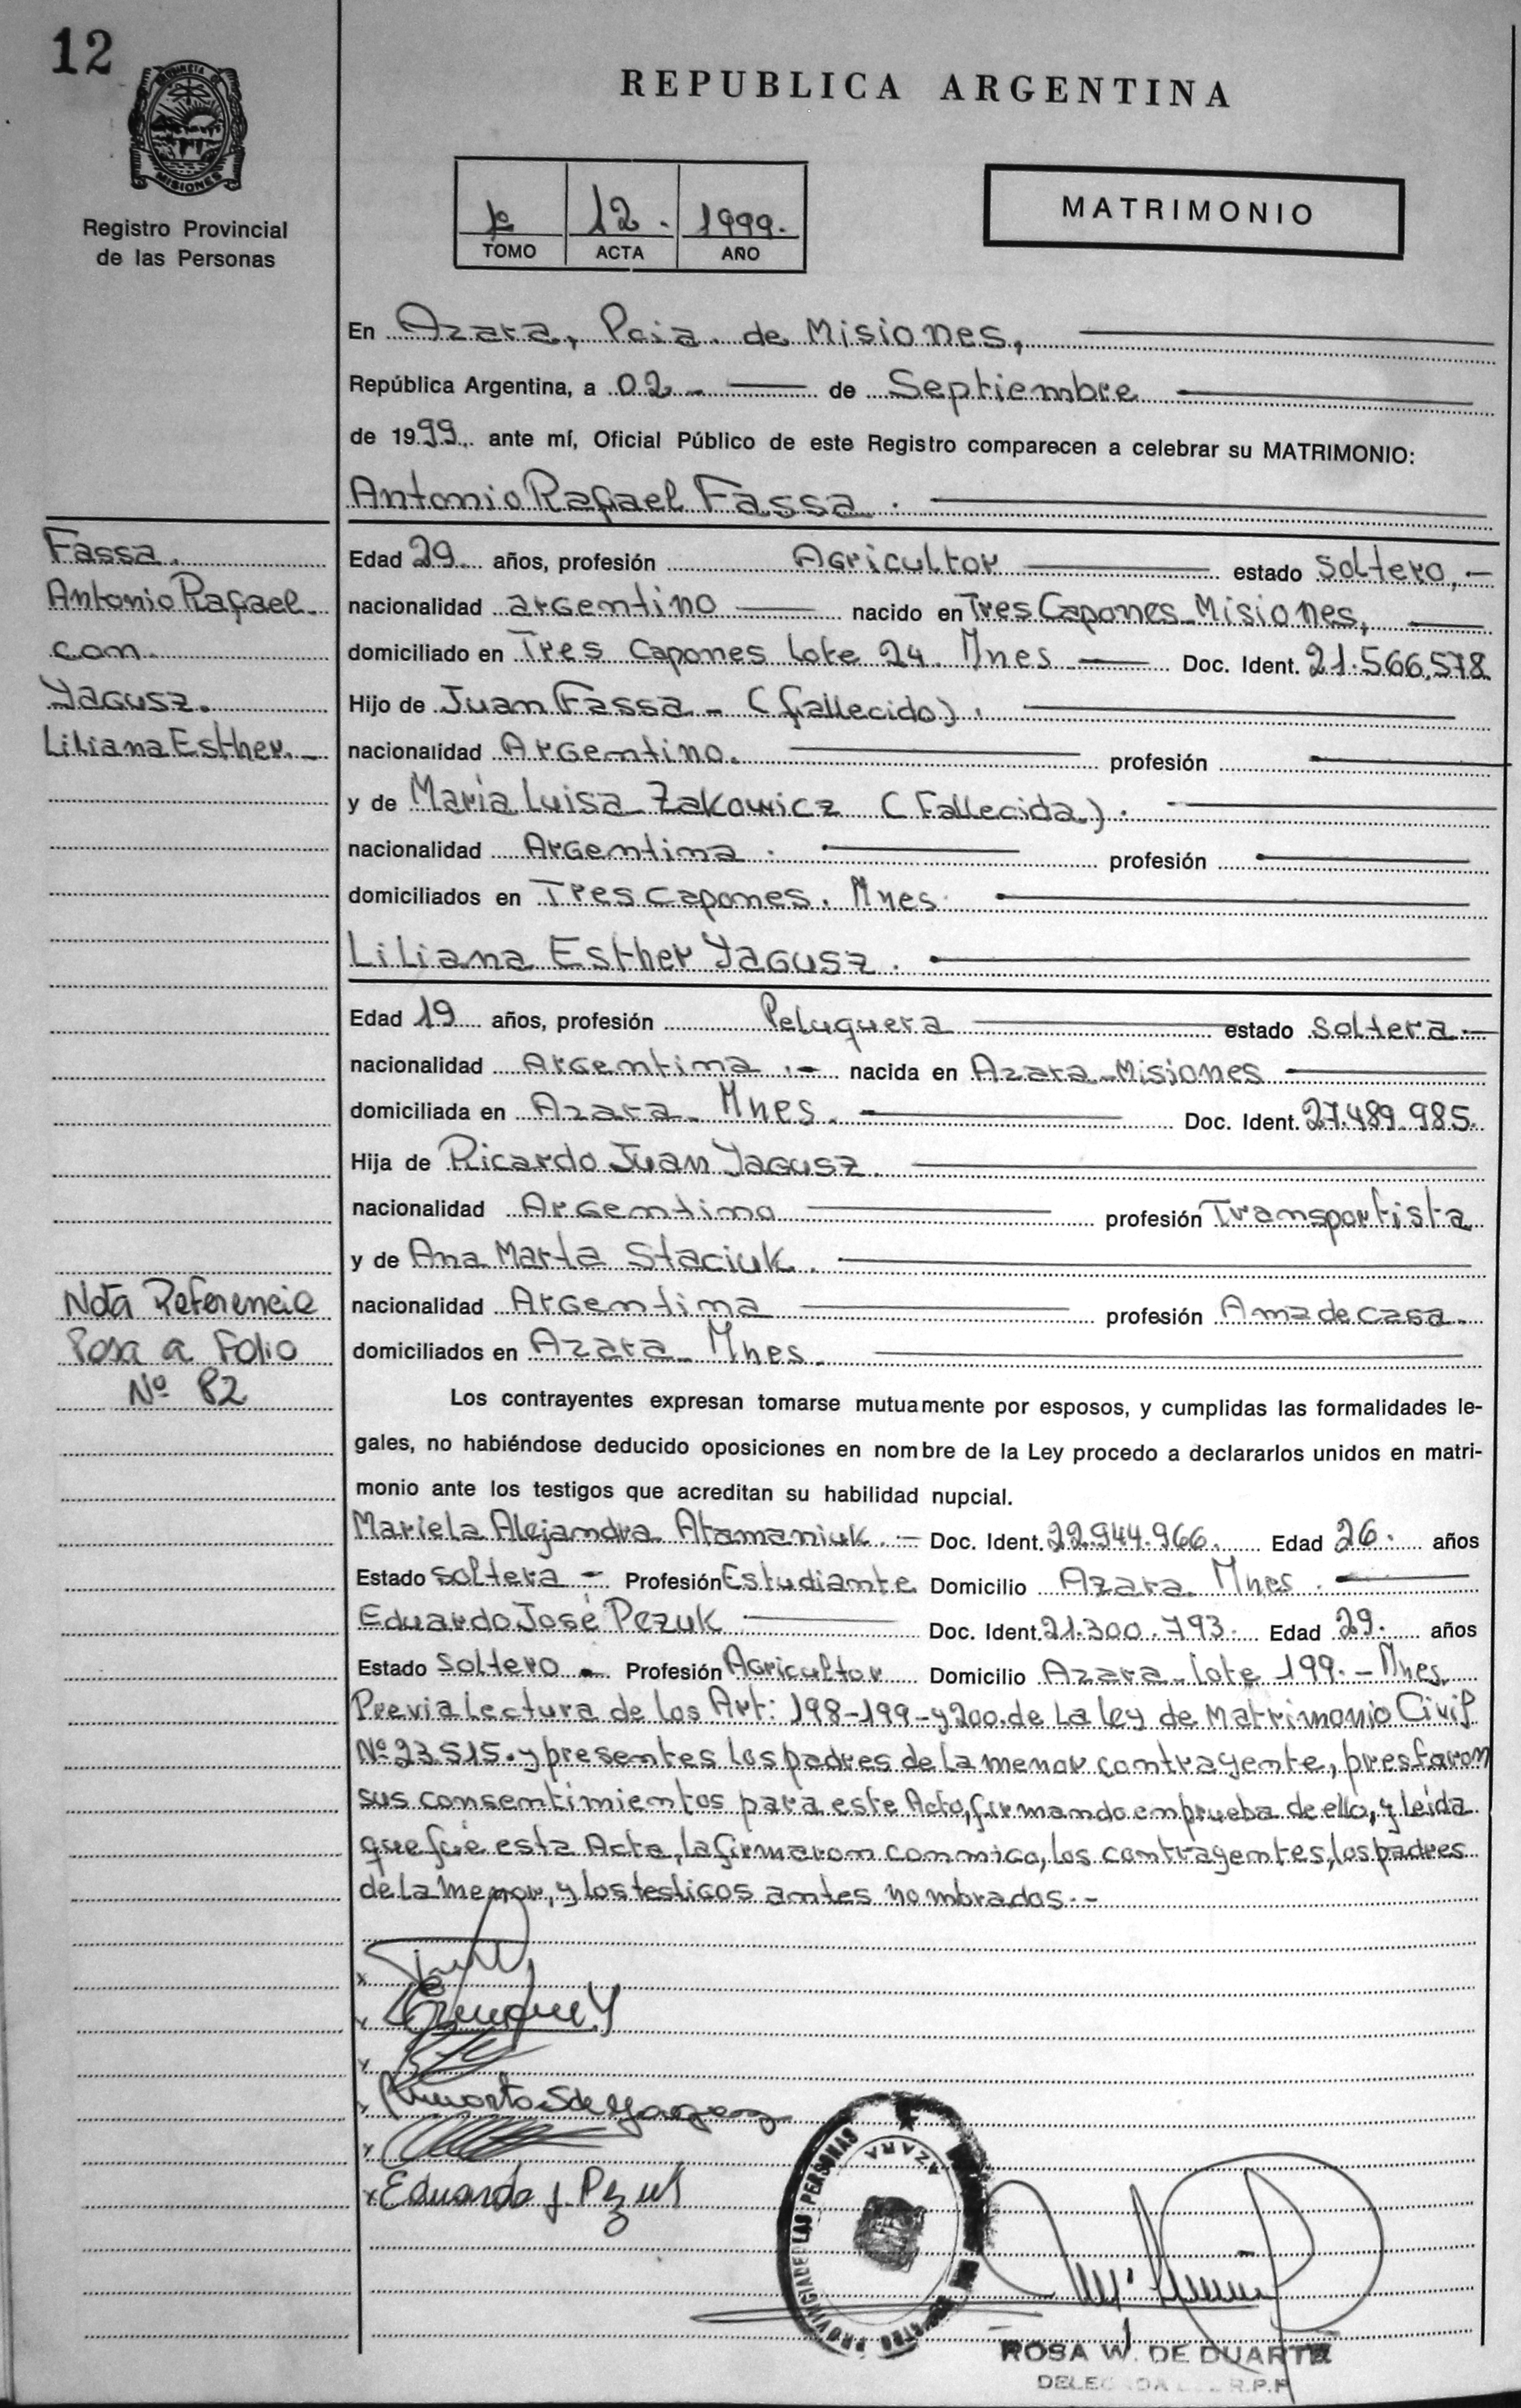 12
PROVINCIA DE
MISIONES
Registro Provincial
de las Personas
REPUBLICA ARGENTINA
1º 12. 1999.
TOMO ACTA AÑO
MATRIMONIO
En Azara, Pcia. de Misiones,
República Argentina, a 02 de Septiembre
de 1999. ante mí, Oficial Público de este Registro comparecen a celebrar su MATRIMONIO:
Antonio Rafael Fassa.
Fassa.
Antonio Rafael
con
Yagusz.
Liliana Esther.
Edad 29 años, profesión Agricultor estado Soltero,
nacionalidad argentino nacido en Tres Capones Misiones,
domiciliado en Tres Capones lote 24. Mnes Doc. Ident. 21.566.578
Hijo de Juan Fassa - (fallecido).
nacionalidad Argentino. profesión
y de María Luisa Zakowicz (Fallecida).
nacionalidad Argentina. profesión
domiciliados en Tres Capones. Mnes
Liliana Esther Yagusz.
Edad 19 años, profesión Peluquera estado Soltera
nacionalidad Argentina nacida en Azara-Misiones
domiciliada en Azara Mnes. Doc. Ident. 27.489.985.
Hija de Ricardo Juan Yagusz.
nacionalidad Argentino profesión Transportista
y de Ana Marta Staciuk.
nacionalidad Argentina profesión Ama de casa.
domiciliados en Azara Mnes.
Nota Referencia
Pasa a Folio
Nº 82
Los contrayentes expresan tomarse mutuamente por esposos, y cumplidas las formalidades le-
gales, no habiéndose deducido oposiciones en nombre de la Ley procedo a declararlos unidos en matri-
monio ante los testigos que acreditan su habilidad nupcial.
Mariela Alejandra Atamaniuk. Doc. Ident. 22.944.966. Edad 26. años
Estado Soltera Profesión Estudiante Domicilio Azara Mnes.
Eduardo José Pezuk Doc. Ident. 21.300.793. Edad 29. años
Estado Soltero Profesión Agricultor Domicilio Azara-lote 199.-Mnes.
Previa Lectura de los Art: 198-199-y 200. de La ley de Matrimonio Civil
Nº 23.515. y presentes los padres de la menor contrayente, prestaron
sus consentimientos para este Acto, firmando en prueba de ello, y leída
que fué esta Acta, la firmaron conmigo, los contrayentes, los padres
de La menor, y los testigos antes nombrados.-
Eduardo J. Pezuk
PROVINCIAL DE LAS PERSONAS
AZARA
ROSA W. DE DUARTE
R.P.P